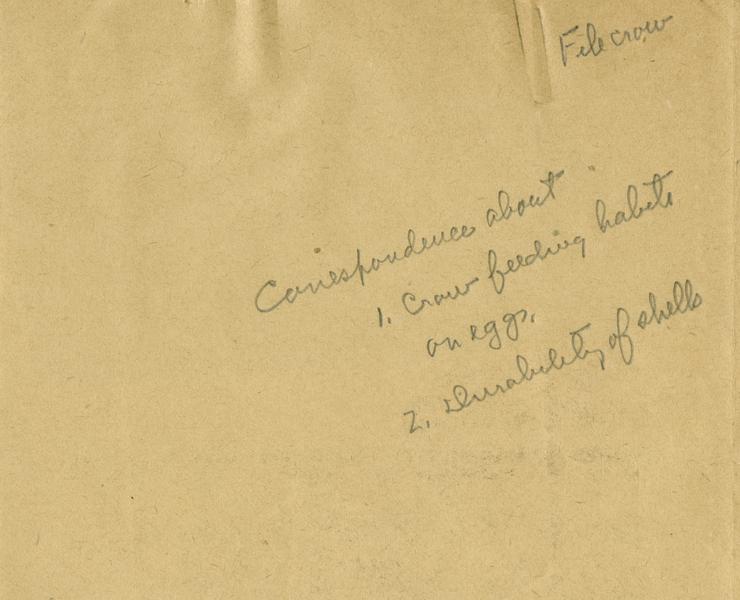 File crow
Correspondence about
1. Crow feeding habits
on eggs.
2. Durability of shells